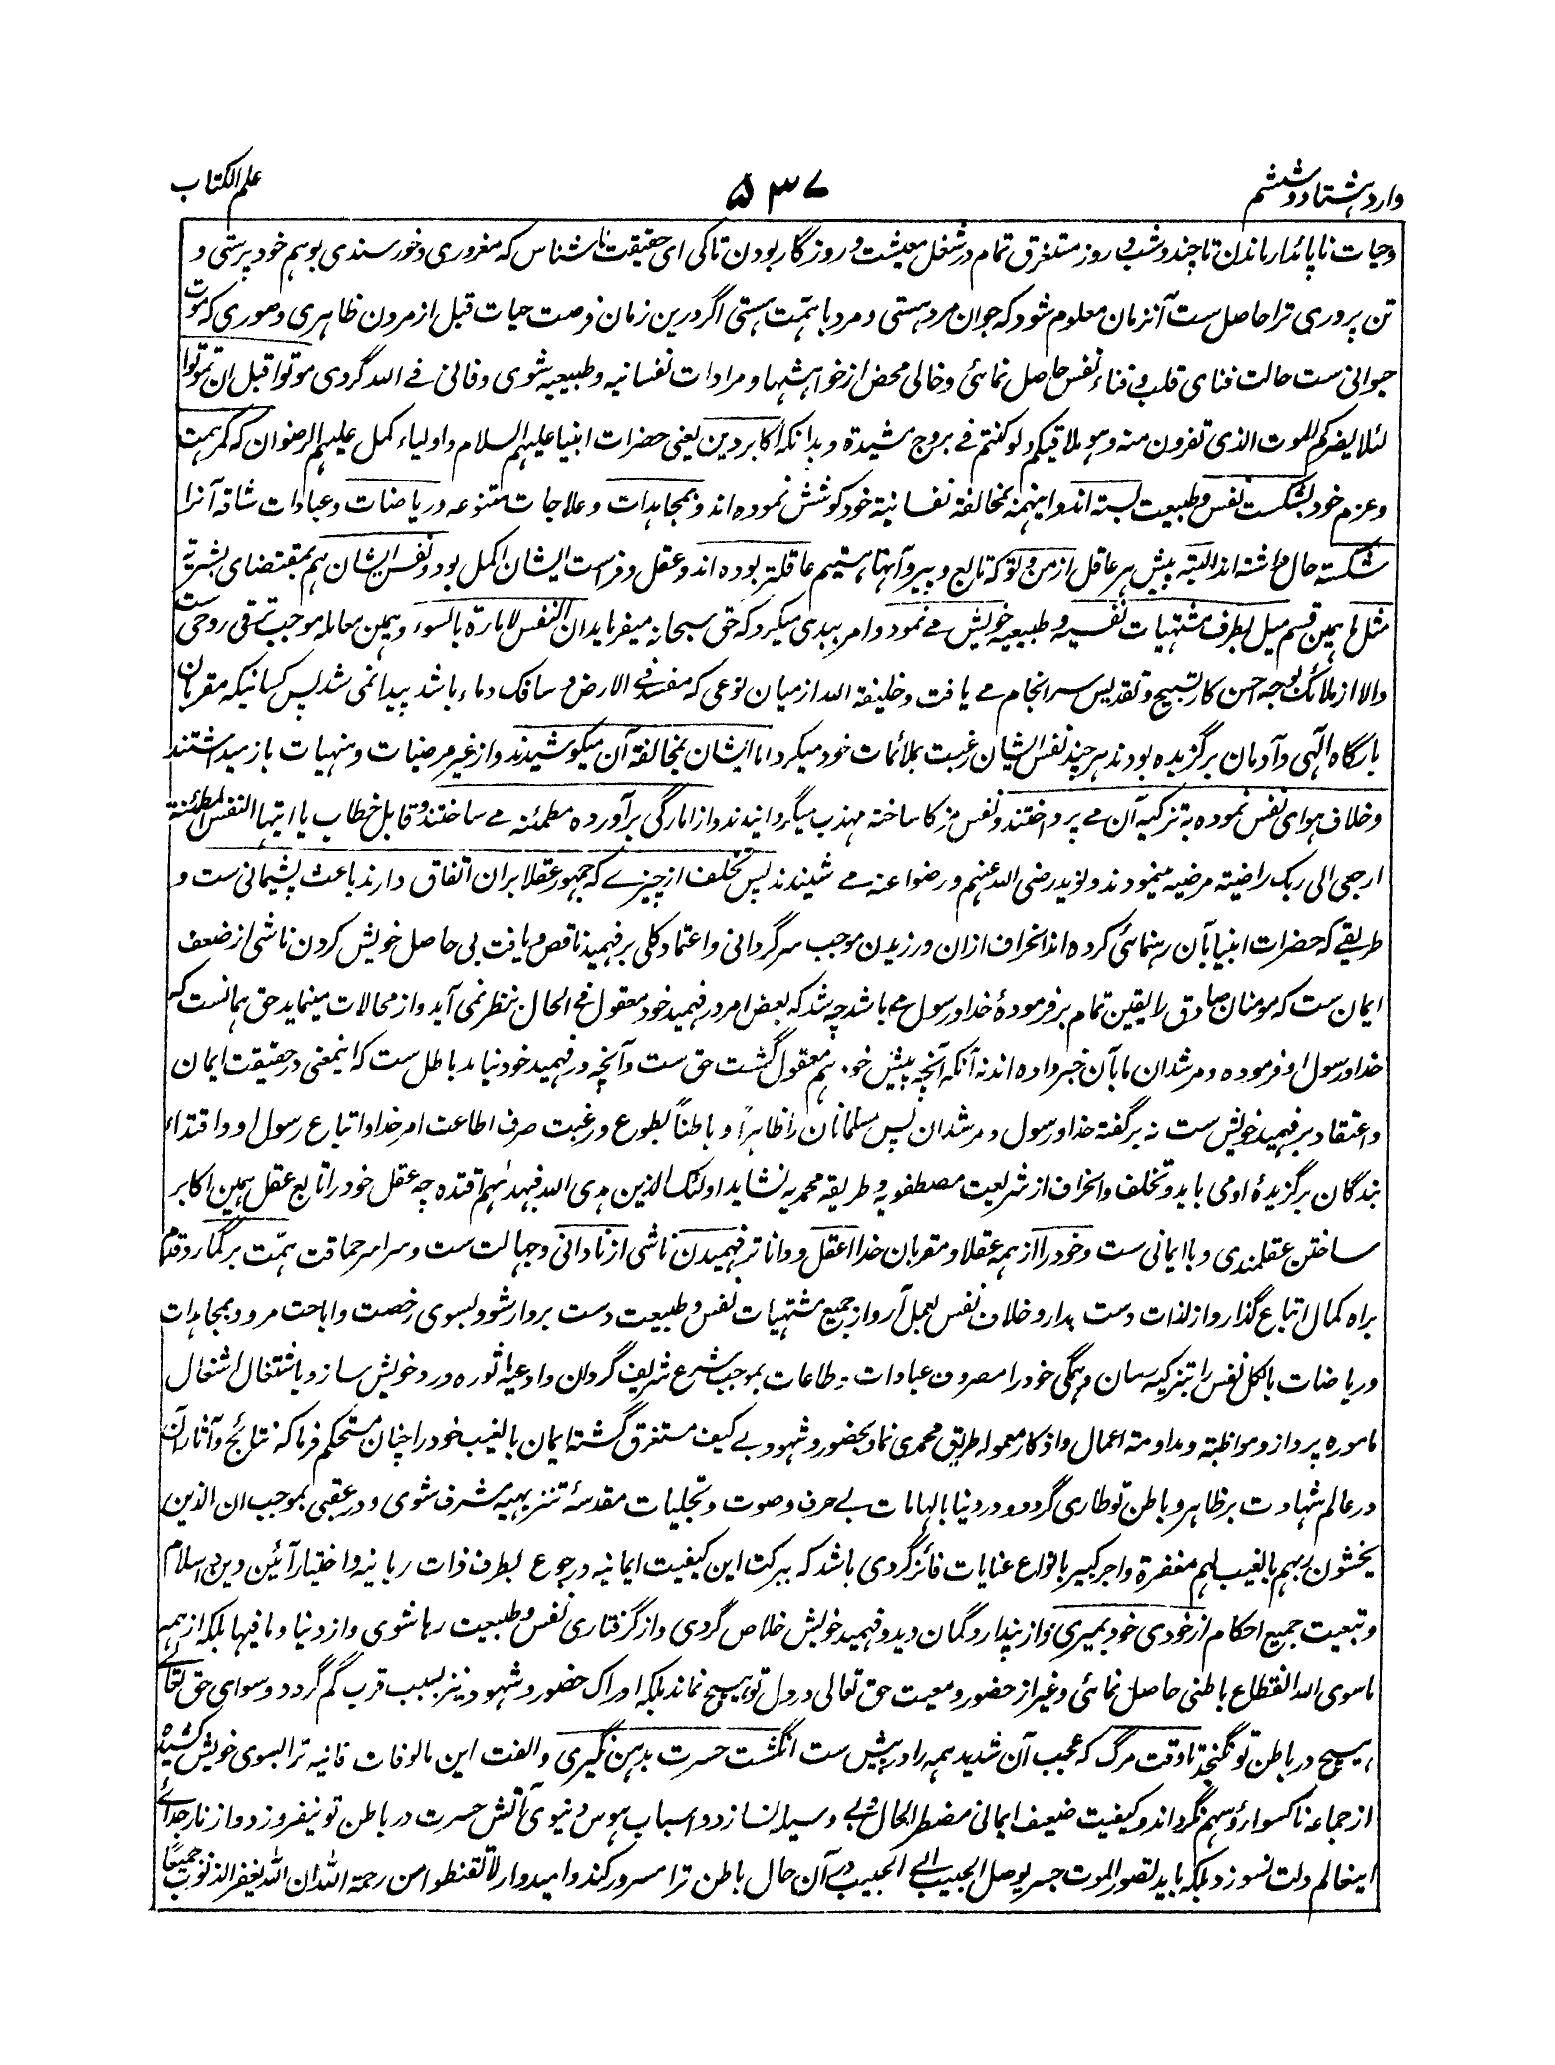 وارد هشتاد و ششم
۵۳۷
علم الکتاب
وحیات ناپائدار ماندن تا چند و شب و روز مستغرق تمام در شغل معیشت و روزگار بودن تا کی ای حقیقت ناشناس که مغروری و خورسندی بوهم خود پرستی و
تن پروری ترا حاصل ست آنزمان معلوم شود که جوان مرد هستی و مرد با همّت هستی اگر درین زمان فرصت حیات قبل از مردن ظاهری و صوری که موت
حیوانی ست حالت فنای قلب و فناء نفس حاصل نمائی و خالی محض از خواهشها و مرادات نفسانیه و طبیعیه شوی و فانی فے اللہ گردی موتوا قبل ان تموتوا
لئلا یضرکم الموت الذی تفرون منه و هو ملاقیکم ولو کنتم فے بروج مشیدة و بدانکه اکابر دین یعنی حضرات انبیا علیهم السلام و اولیاء کمل علیهم الرضوان که کمر همت
و عزم خود بشکست نفس و طبیعت بسته اند و اینهمه بمخالفة نفسانیة خود کوشش نموده اند و بمجاهدات و علاجات متنوعه و ریاضات و عبادات شاقه آنرا
شکسته حال داشته اند البته پیش هر عاقل از من و تو که تابع و پیرو آنها هستیم عاقلتر بوده اند و عقل و فراست ایشان اکمل بود و نفس ایشان هم بمقتضای بشریة
مثل ما همین قسم میل بطرف مشتهیات نفسیه و طبیعیه خویش مے نمود و امر ببدی میکرد که حق سبحانه میفرماید ان النفس لامارة بالسوء و همین معامله موجب ترقی روحی ست
والا از ملائک بوجه احسن کار تسبیح و تقدیس سرانجام مے یافت و خلیفة اللہ از میان نوعی که مفسد فے الارض و سافک دماء باشد پیدا نمی شد پس کسانیکه مقربان
بارگاه الٰهی و آدمیان برگزیده بودند هر چند نفس ایشان رغبت بملائمات خود میکرد اما ایشان بمخالفة آن میکوشیدند و از غیر مرضیات و منهیات باز میداشتند
و خلاف هوای نفس نموده به تزکیه آن مے پرداختند و نفس مزکا ساخته مهذب میگردانیدند و از امارگی برآورده مطمئنه مے ساختند و قابل خطاب یا ایتها النفس المطمئنة
ارجعی الی ربک راضیة مرضیه مینمودند و نوید رضی اللہ عنهم و رضوا عنه مے شنیدند پس تخلف از چیزے که جمهور عقلا بران اتفاق دارند باعث پشیمانی ست و
طریقے که حضرات انبیا بآن رهنمائی کرده اند انحراف ازان ورزیدن موجب سرگردانی و اعتماد کلی بر فهمید ناقص و یافت بی حاصل خویش کردن ناشی از ضعف
ایمان ست که مومنان صادق را یقین تمام بر فرمودهٔ خدا و رسول مے باشد چه شد که بعض امر در فهمید خود معقول فے الحال بنظر نمی آید و از محالات مینماید حق همانست که
خدا و رسول او فرموده و مرشدان ما بآن خبر داده اند نه آنکه آنچه پیش خود هم معقول گشت حق ست و آنچه در فهمید خود نیاید باطل ست که اینمعنی در حقیقت ایمان
و اعتقاد بر فهمید خویش ست نه بر گفته خدا و رسول و مرشدان پس مسلمانان را ظاهراً و باطناً بطوع و رغبت صرف اطاعت امر خدا و اتباع رسول او و اقتداء
بندگان برگزیدهٔ او می باید و تخلف و انحراف از شریعت مصطفویه و طریقه محمدیه نشاید اولئک الذین هدی اللہ فبهدٰهم اقتده چه عقل خود را تابع عقل همین اکابر
ساختن عقلمندی و با ایمانی ست و خود را از همه عقلا و مقربان خدا اعقل و داناتر فهمیدن ناشی از نادانی و جهالت ست و سراسر حماقت همّت برگمار و قدم
براه کمال اتباع گذار و از لذات دست بدار و خلاف نفس بعمل آر و از جمیع مشتهیات نفس و طبیعت دست بردار شو و بسوی رخصت و اباحت مرو و بمجاهدات
و ریاضات بالکل نفس را بتزکیه رسان و همگی خود را مصروف عبادات و طاعات بموجب شرع شریف گردان و ادعیهٔ ماثوره ورد خویش ساز و باشتغال اشغال
ماموره پرداز و مواظبة و مداومة اعمال و اذکار معموله طریق محمدی نما و بحضور و شهود بے کیف مستغرق گشته ایمان بالغیب خود را چنان مستحکم فرما که نتائج و آثار آن
در عالم شهادت بر ظاهر و باطن تو طاری گردد و در دنیا بالهامات بے حرف و صوت و تجلیات مقدسهٔ تنزیهیه مشرف شوی و در عقبی بموجب ان الذین
یخشون ربهم بالغیب لهم مغفرة و اجر کبیر بانواع عنایات فائز گردی باشد که ببرکت این کیفیت ایمانیه و رجوع بطرف ذات ربانیه و اختیار آئین دین اسلام
و تبعیت جمیع احکام از خودی خود بمیری و از پندار و گمان دید و فهمید خویش خلاص گردی و از گرفتاری نفس و طبیعت رها شوی و از دنیا و ما فیها بلکه از همه
ماسوی اللہ انقطاع باطنی حاصل نمائی و غیر از حضور و معیت حق تعالی در دل تو هیچ نماند بلکه ادراک حضور و شهود نیز بسبب قرب گم گردد و سوای حق تعالے
هیچ در باطن تو نگنجد تا وقت مرگ که عجب آن شدید همه را در پیش ست انگشت حسرت بدهن نگیری و الفت این مالوفات فانیه ترا بسوی خویش کشیده
از جماعه ناکسوا رؤسهم نگرداند و کیفیت ضعیف ایمانی مضطر الحال و بے وسیله نسازد و اسباب هوس دنیوی آتش حسرت در باطن تو نیفروزد و از نار جدائے
اینعالم دلت نسوزد بلکه باید تصور الموت جسر یوصل الحبیب الی الحبیب درے آن حال باطن ترا مسرور کند و امیدوار لا تقنطوا من رحمة اللہ ان اللہ یغفر الذنوب جمیعًا